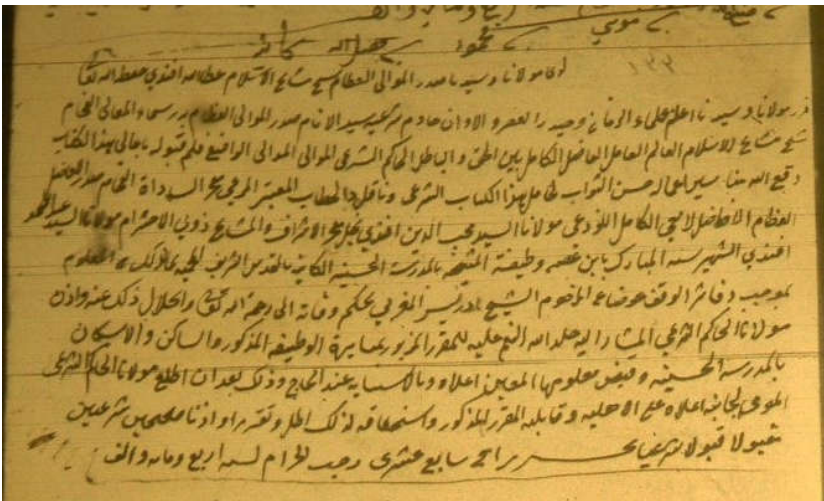 موسى محمود فضل الله كاتبه
١٣٣
لدى مولانا وسيدنا صدر الموالي العظام شيخ مشايخ الاسلام عطا الله افندي حفظه الله تعالى
قرر مولانا وسيدنا اعلم علماء الزمان وحيد العصر والاوان خادم شريعة سيد الانام صدر الموالي العظام بدر سماء المعالي الفخام
شيخ مشايخ الاسلام العالم العامل الفاضل الكامل بين الحق والباطل الحاكم الشرعي الموالي الموالي الواضع ختمه قبوله باعالي هذا الكتاب
وقع الله لحسن الثواب لحامل هذا الكتاب الشرعي وناقل ذا الخطاب المعتبر المرعي فخر السادة الفخام صدر
العظام الافاضل الكامل اللوذعي مولانا السيد محب الدين افندي نجل فخر الاشراف والمشايخ ذوي الاحترام مولانا السيد عبد الصمد
افندي الشهير نسبه المبارك بابن غضيه وظيفة المشيخة بالمدرسة الحسنية الكاينة بالقدس الشريف بما لذلك من المعلوم
بموجب دفاتر الوقف عوضا عن المرحوم الشيخ ادريس المغربي بحكم وفاته الى رحمة الله تعالى وانحلال ذلك عنه واذن
مولانا الحاكم الشرعي المشار اليه خلد الله النعم عليه للمقرر المزبور بمباشرة الوظيفة المذكورة والسكن والاسكان
بالمدرسة الحسنية وقبض معلومها المعين اعلاه وبالاستنابة عند الحاجة وذلك بعد ان اطلع مولانا الحاكم الشرعي
المومى لجنابه اعلاه على الاهلية وقابلية المقرر المذكور واستحقاقه لذلك تقريرا واذنا صحيحين شرعيين
مقبولا قبولا شرعيا تحريرا في سابع عشري رجب الحرام لسنة اربع ومايه والف